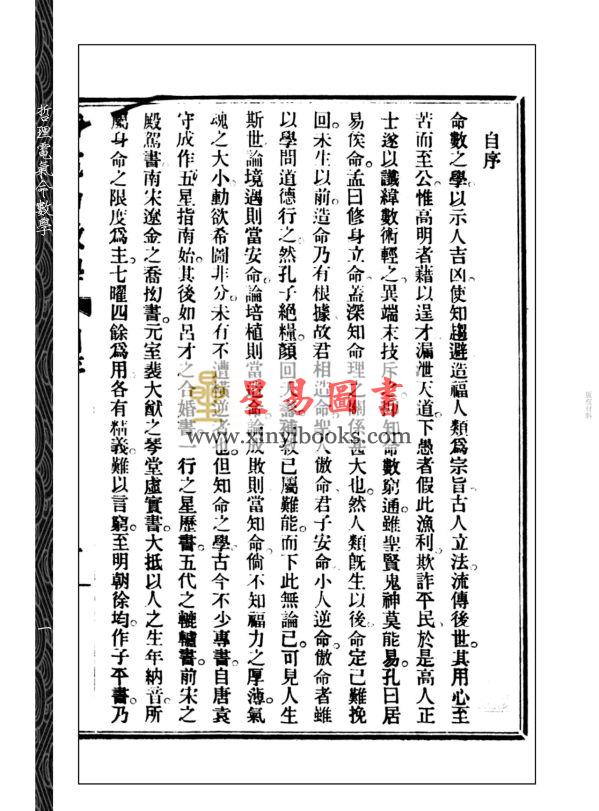 自序
命數之學以示人吉凶使知趨避造福人類爲宗旨古人立法流傳後世其用心至
苦而至公惟高明者藉以逞才漏泄天道下愚者假此漁利欺詐平民於是高人正
士遂以讖緯數術輕之異端末技斥抑知命數窮通雖聖賢鬼神莫能易孔曰居
易俟命孟曰修身立命蓋深知命理之關係甚大也然人類旣生以後命定已難挽
回未生以前造命乃有根據故君相造命聖人傲命君子安命小人逆命傲命者雖
以學問道德行之然孔子絕糧顏回夭已屬難能而下此無論已可見人生
斯世論境遇則當安命論培植則當命論成敗則當知命倘不知福力之厚薄氣
魂之大小動欲希圖非分未有不遭橫逆者也但知命之學古今不少專書自唐袁
守成作五星指南始其後如呂才之合婚書一行之星歷書五代之轆轤書前宋之
殿駕書南宋遼金之喬拗書元室裴大猷之琴堂虛實書大抵以人之生年納音所
屬身命之限度爲主七曜四餘爲用各有精義難以言窮至明朝徐均作子平書乃
哲理電氣命數學
一
版權材料
星易圖書
www.xinyibooks.com